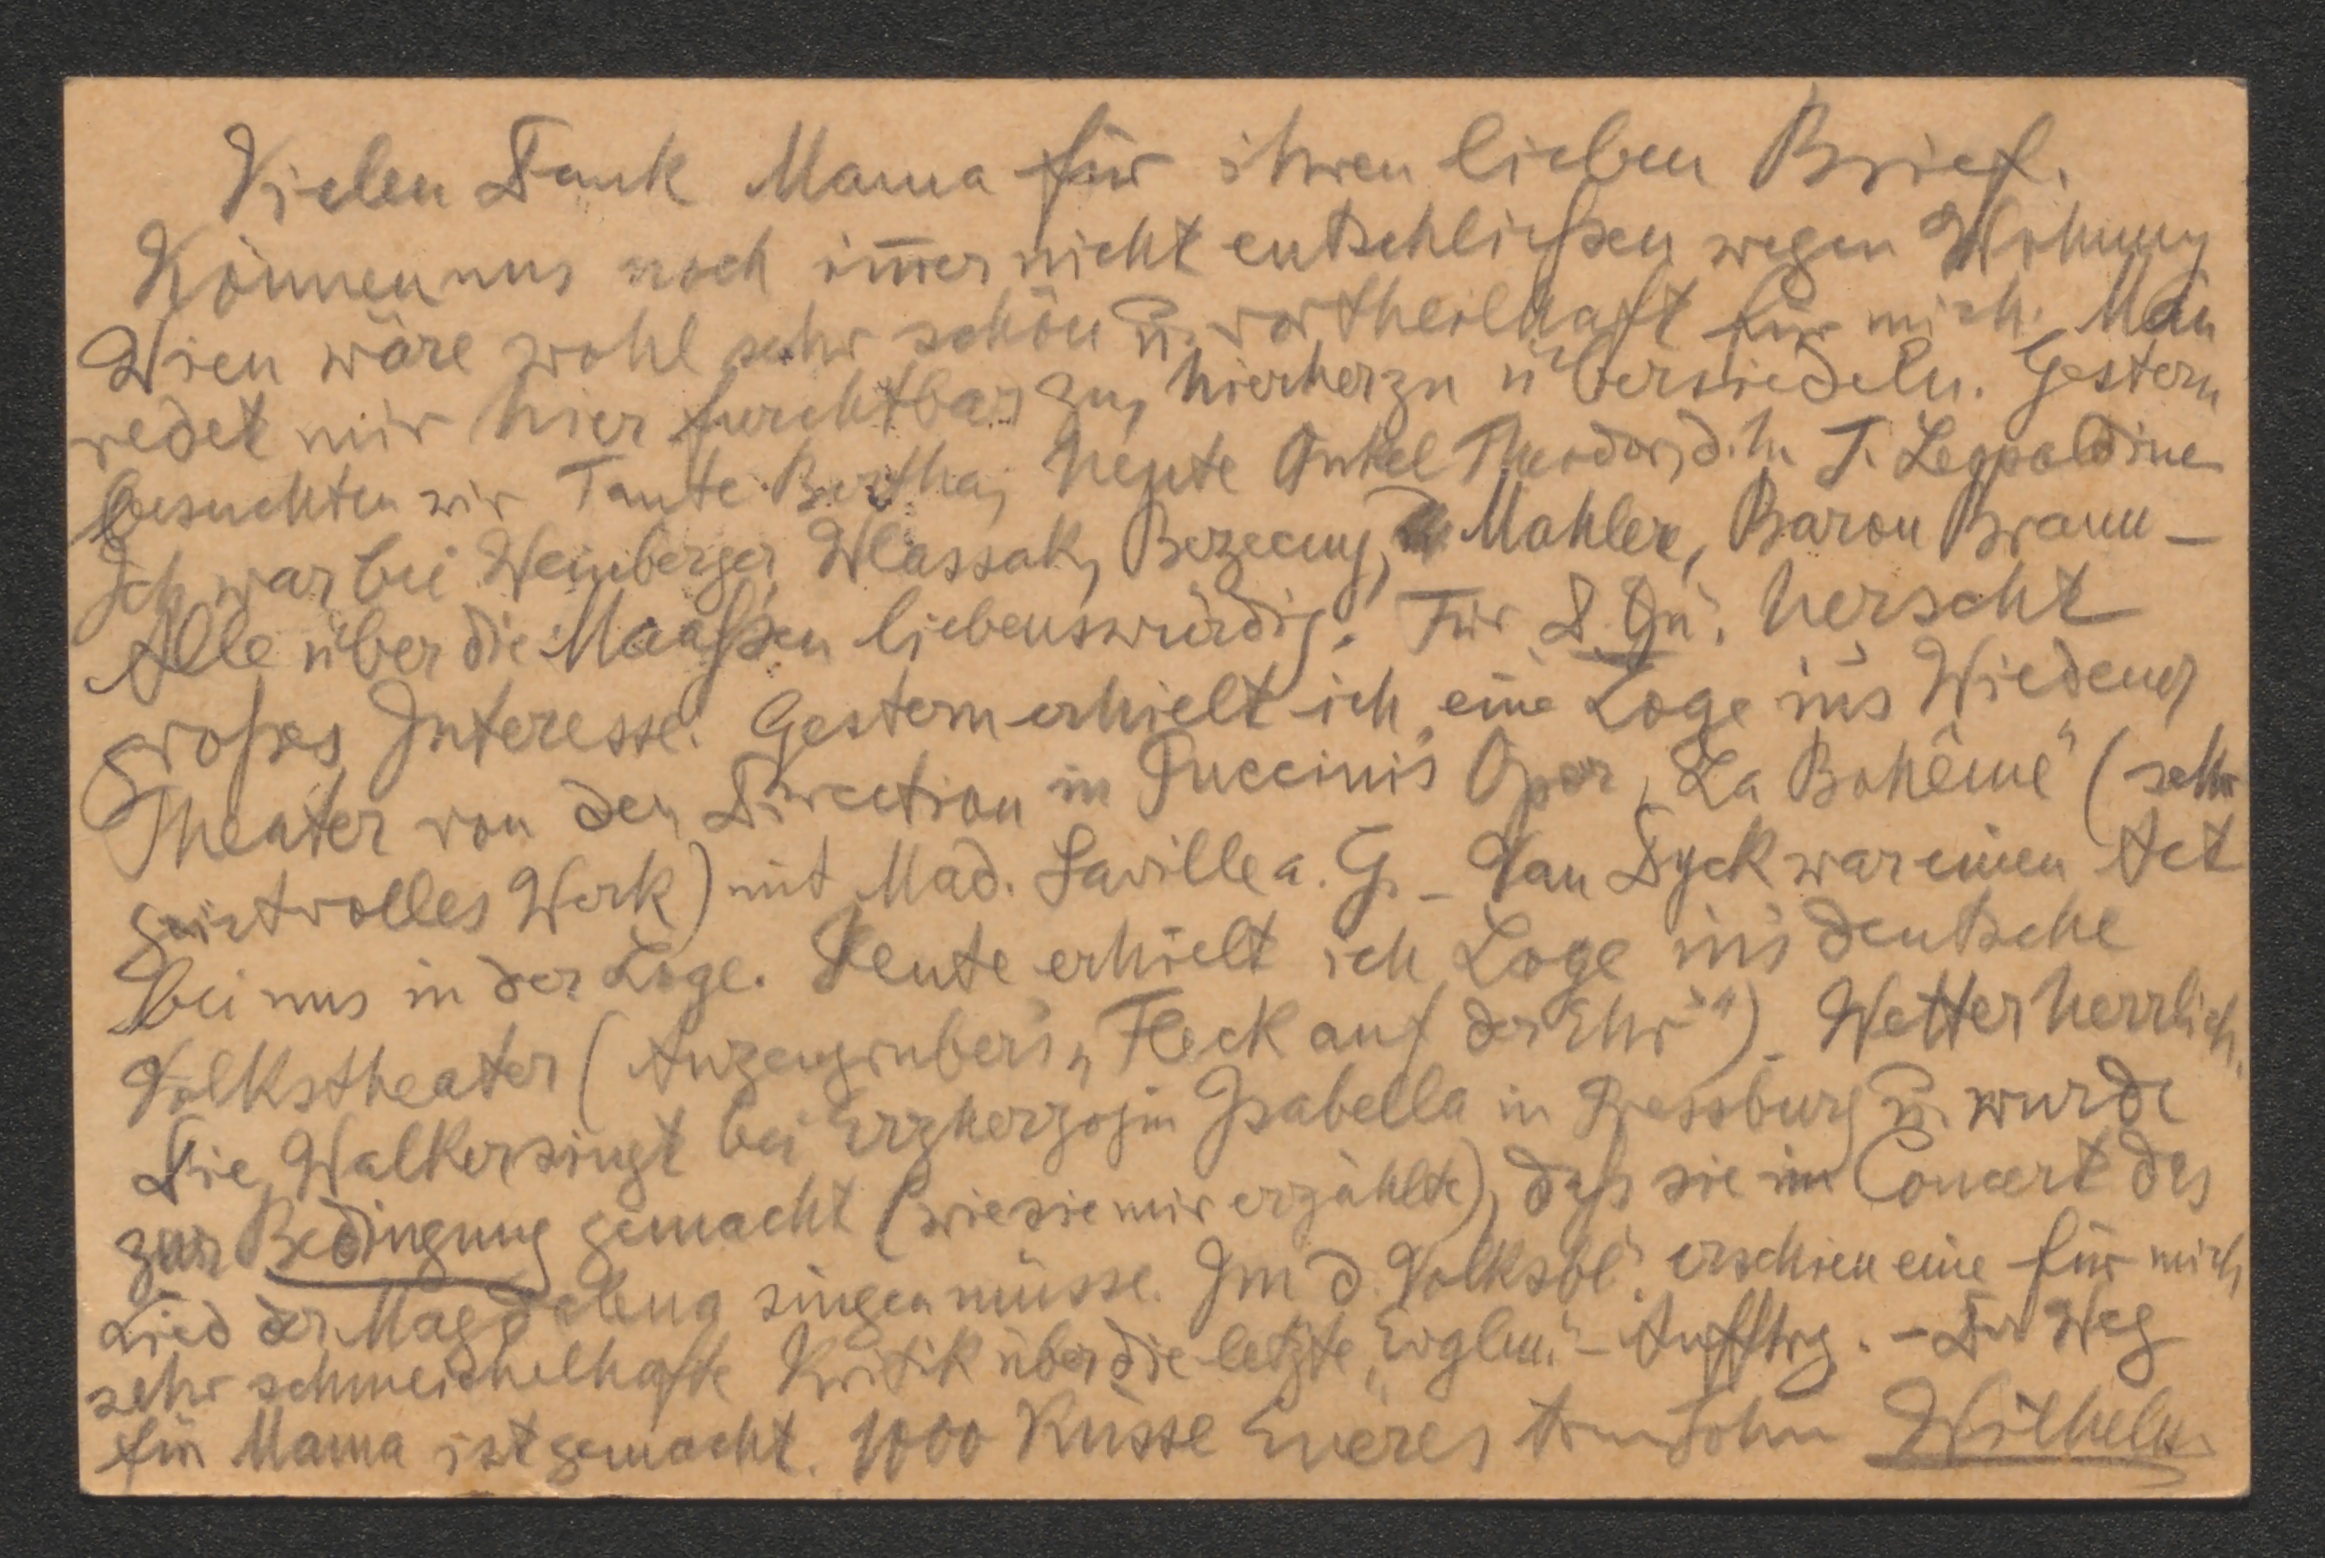 Vielen Dank Mama für ihren lieben Brief.
Können uns noch im̅er nicht entschließen wegen Wohnung
Wien wäre wohl sehr schön u. vortheilhaft für mich. Man
redet mir hier furchtbar zu, hierherzu übersiedeln. Gestern
besuchten wir Tante Bertha, heute Onkel Theodor, d. h. T. Leopoldine
Ich war bei Weinberger, Wlassak, Bezecny, Mahler, Baron Braun –
Alle über die Maaßen liebenswürdig. Für D. Qu. herscht
großes Interesse. Gestern erhielt ich eine Loge in's Wiedener
Theater von der Direction in Puccini's Oper „La Bohême" (sehr
geistvolles Werk) mit Mad. Saville a. G. – Van Dyck war einen Act
bei uns in der Loge. Heute erhielt ich Loge in's deutsche
Volkstheater (Anzengruber's „Fleck auf der Ehr'") – Wetter herrlich.
Die Walker singt bei Erzherzogin Isabella in Pressburg u. wurde
zur Bedingung gemacht (wie sie mir erzählte), daß sie im Concert das
Lied der Magdalena singen müsse. Im d. Volksbl. erschien eine für mich
sehr schmeichelhafte Kritik über die letzte „Evglm."- Aufführg. – Der Weg
für Mama ist gemacht. 1000 Küsse Eueres Sohn Wilhelm